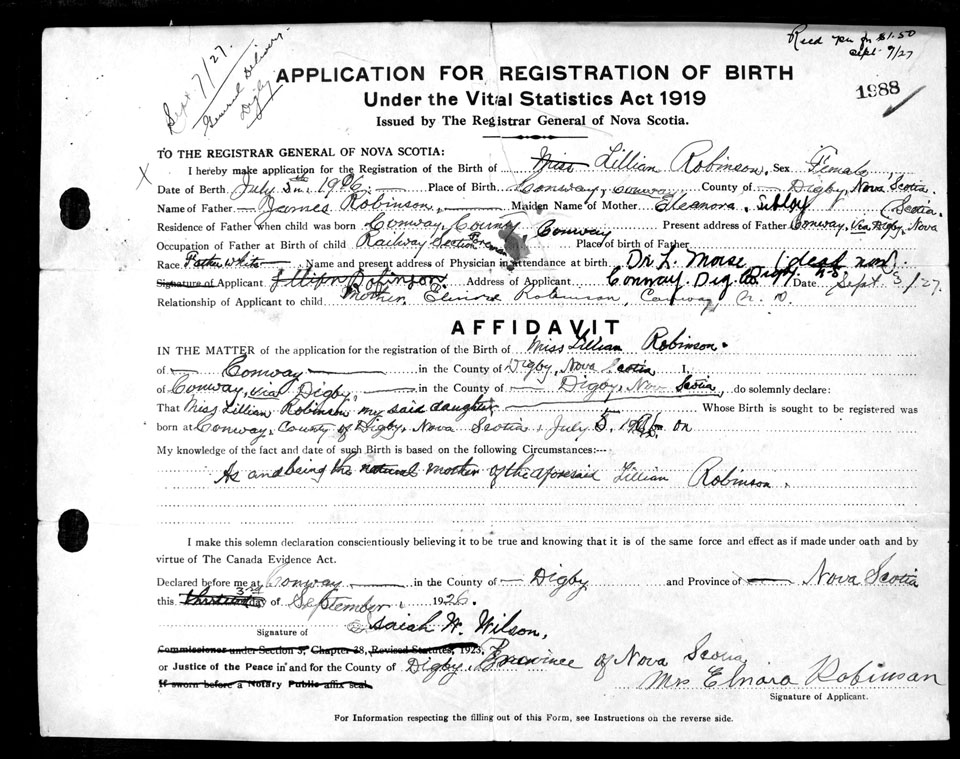 Sept 7/27.
General Delivery
Digby
Recd $1.50
Sept 9/27
1988
APPLICATION FOR REGISTRATION OF BIRTH
Under the Vital Statistics Act 1919
Issued by The Registrar General of Nova Scotia.
TO THE REGISTRAR GENERAL OF NOVA SCOTIA:
X
I hereby make application for the Registration of the Birth of Miss Lillian Robinson, Sex Female,
Date of Birth July 5th Place of Birth Conway, Conway, County of Digby, Nova Scotia.
Name of Father James Robinson, Maiden Name of Mother Eleanora Sibley (Scotia.
Residence of Father when child was born Conway, County Conway Present address of Father Conway, Via Digby, Nova
Occupation of Father at Birth of child Railway Section Place of birth of Father
Race White Name and present address of Physician in attendance at birth. Dr L. Morse (dead now)
Signature of Applicant. Lillian Robinson. Address of Applicant Conway Dig. Co. Digby N.S Date Sept 3/27.
Relationship of Applicant to child Mother. Robinson, Conway,
AFFIDAVIT
IN THE MATTER of the application for the registration of the Birth of Miss Lillian Robinson.
of Conway in the County of Digby, Nova Scotia I,
of Conway, via Digby, in the County of Digby, Nova Scotia, do solemnly declare:
That Miss Lillian Robinson my said daughter Whose Birth is sought to be registered was
born at Conway, County of Digby, Nova Scotia, July 5, on
My knowledge of the fact and date of such Birth is based on the following Circumstances:---
As and being the natural mother of the aforesaid Lillian Robinson.
I make this solemn declaration conscientiously believing it to be true and knowing that it is of the same force and effect as if made under oath and by
virtue of The Canada Evidence Act.
Declared before me at Conway in the County of Digby and Province of Nova Scotia
this 3rd day of September, 1926.
Isaiah W. Wilson,
Signature of
Commissioner under Section 3, Chapter 38, Revised Statutes, 1923,
or Justice of the Peace in and for the County of Digby, Province of Nova Scotia
If sworn before a Notary Public affix seal.
Mrs Elnora Robinson
Signature of Applicant.
For Information respecting the filling out of this Form, see Instructions on the reverse side.